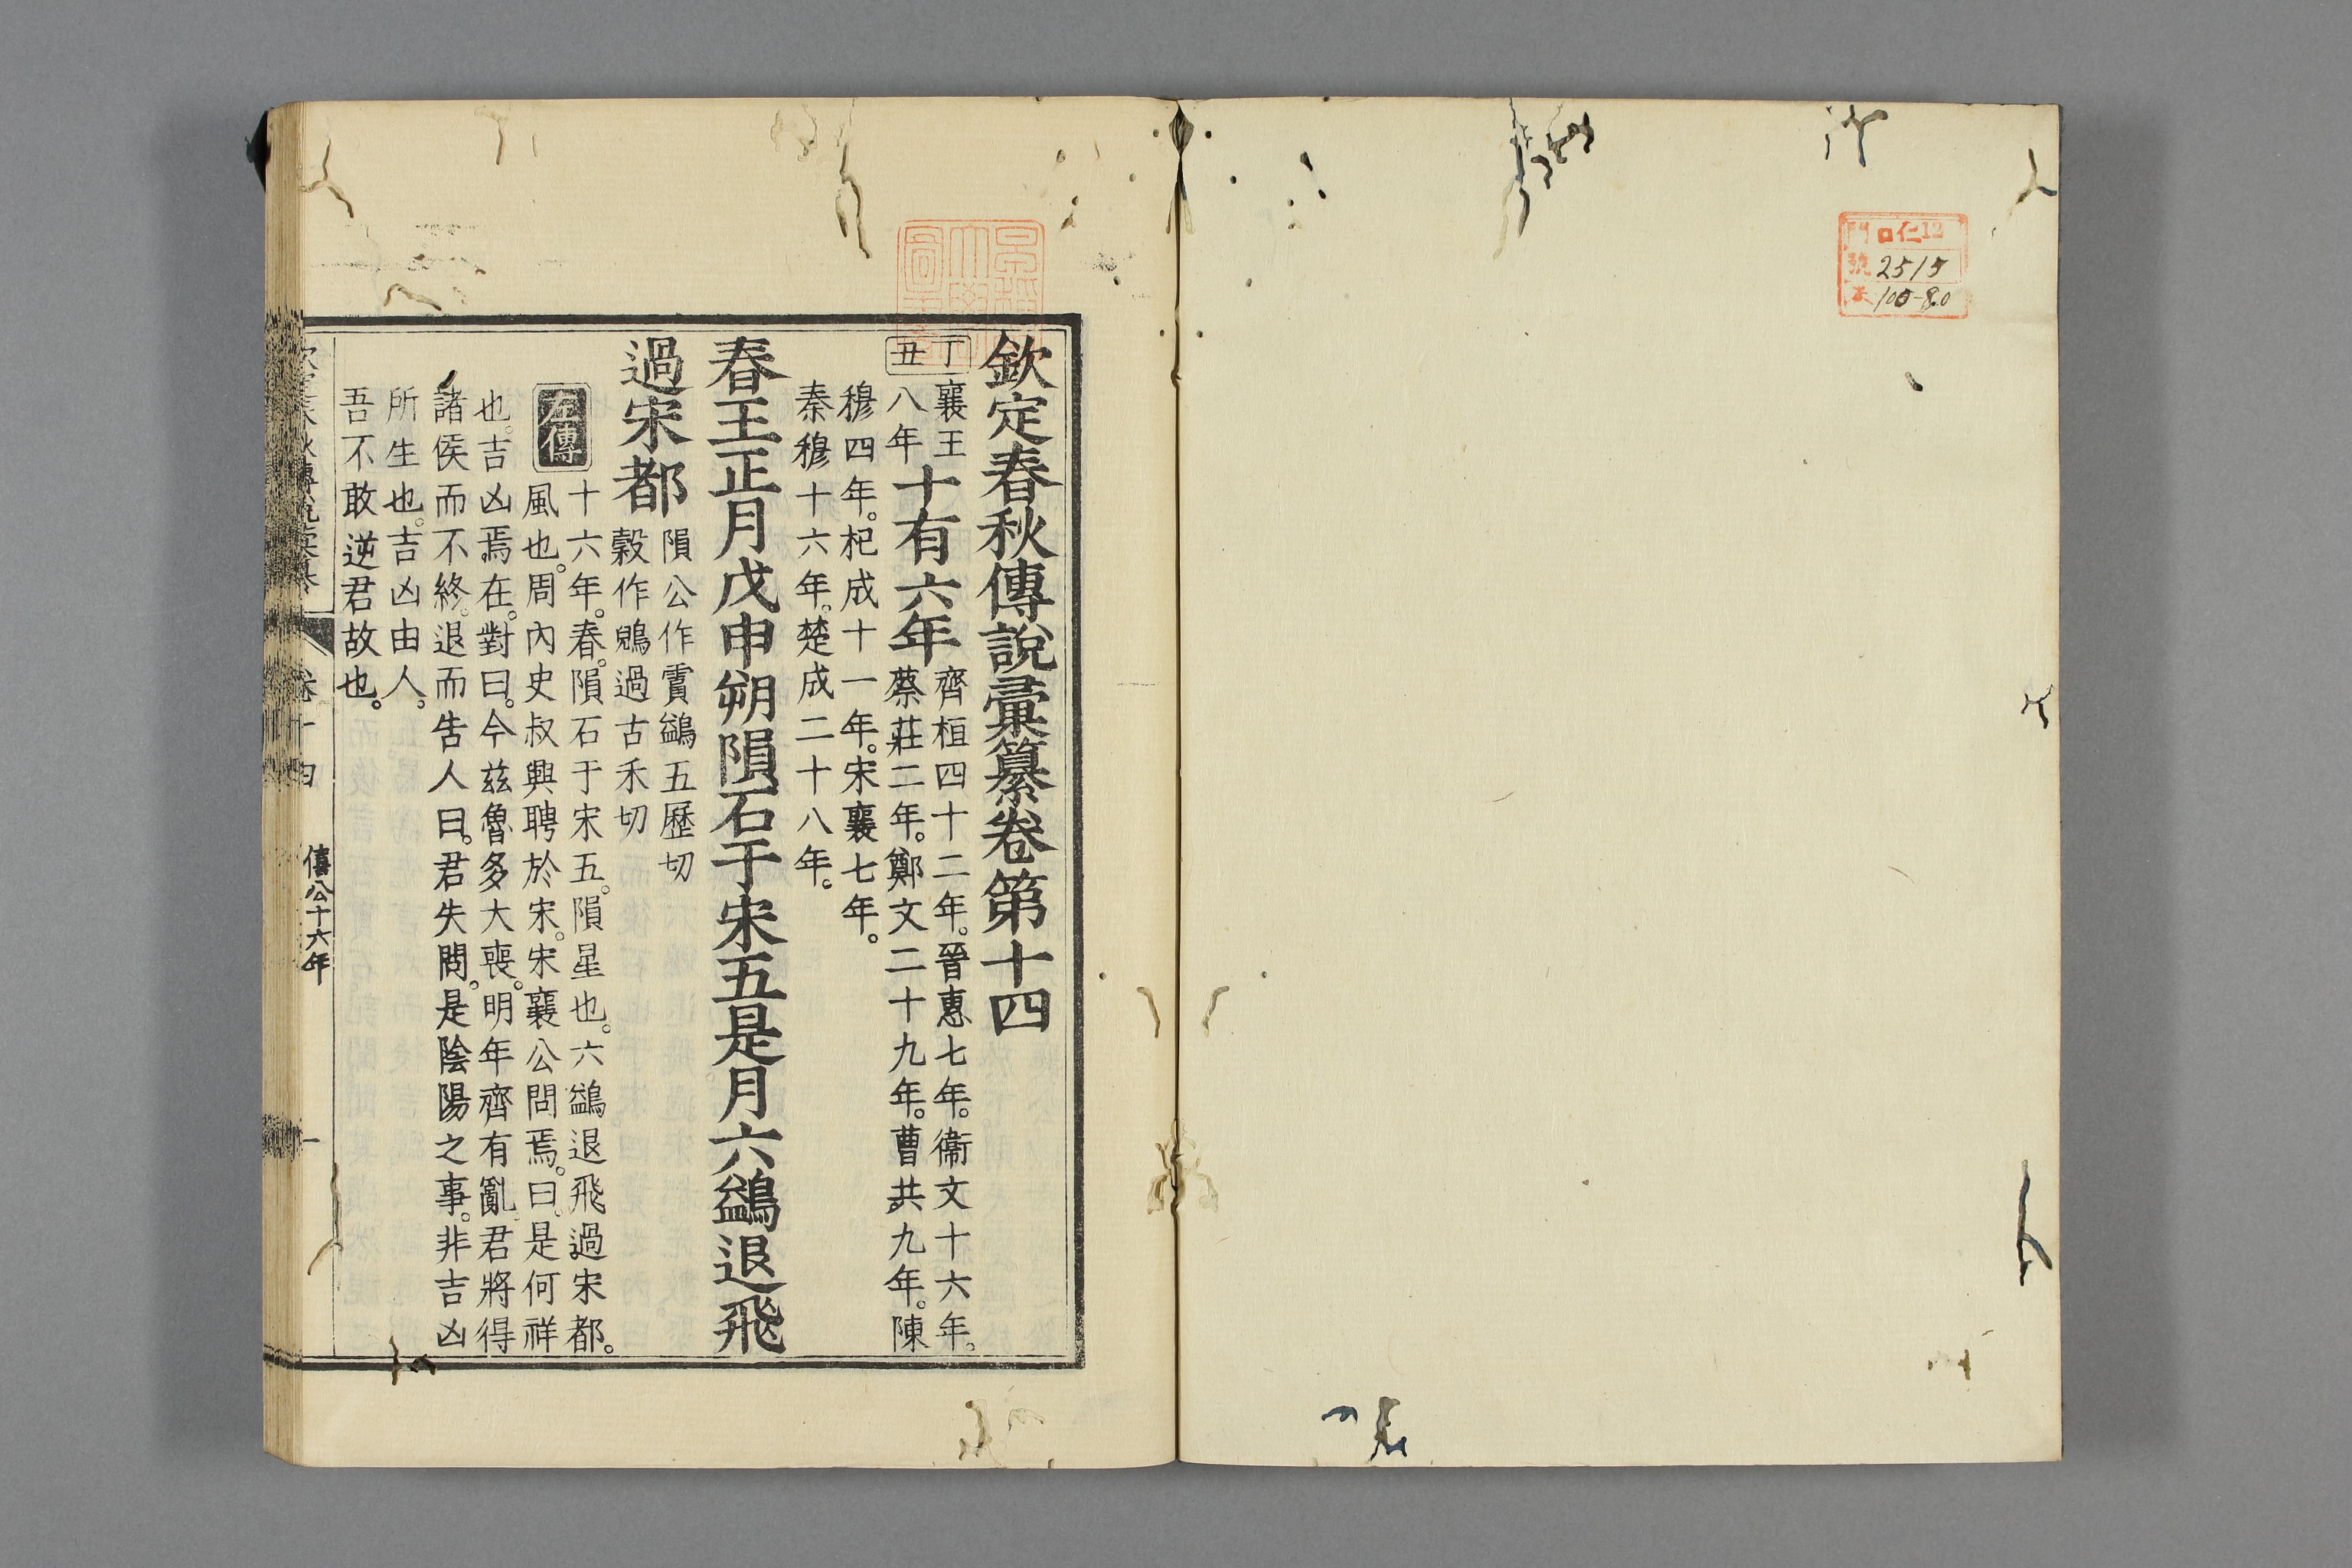 門 口仁12
號 2515
100-80
欽定春秋傳說彙纂卷第十四
丁丑
襄王八年
十有六年
齊桓四十二年。晉惠七年。衞文十六年。
蔡莊二年。鄭文二十九年。曹共九年。陳
穆四年。杞成十一年。宋襄七年。
秦穆十六年。楚成二十八年。
春王正月戊申朔隕石于宋五是月六鷁退飛
過宋都
隕公作霣鷁五歷切
穀作鶂過古禾切
左傳
十六年。春。隕石于宋五。隕星也。六鷁退飛過宋都。
風也。周內史叔興聘於宋。宋襄公問焉。曰。是何祥
也。吉凶焉在。對曰。今茲魯多大喪。明年齊有亂。君將得
諸侯而不終。退而告人曰。君失問。是陰陽之事。非吉凶
所生也。吉凶由人。
吾不敢逆君故也。
卷十四
僖公十六年
一